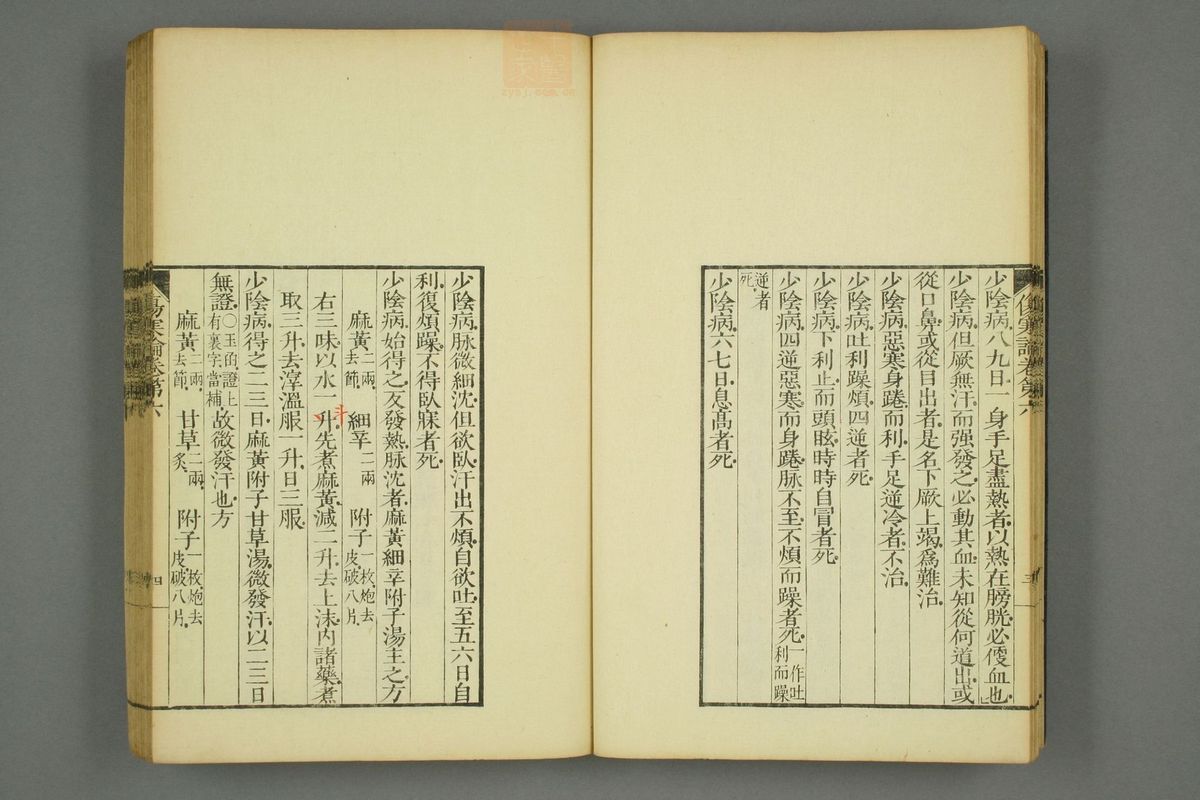 少陰病八九日一身手足盡熱者以熱在膀胱必便血也
少陰病但厥無汗而强發之必動其血未知從何道出或
從口鼻或從目出者是名下厥上竭爲難治
少陰病惡寒身踡而利手足逆冷者不治
少陰病吐利躁煩四逆者死
少陰病下利止而頭眩時時自冒者死
少陰病四逆惡寒而身踡脉不至不煩而躁者死一作吐利而躁
逆者死
少陰病六七日息高者死
傷寒論卷第六
三
少陰病脉微細沈但欲臥汗出不煩自欲吐至五六日自
利復煩躁不得臥寐者死
少陰病始得之反發熱脉沈者麻黃細辛附子湯主之方
麻黃二兩去節 細辛二兩 附子一枚炮去皮破八片
右三味以水一升先煮麻黃減二升去上沫内諸藥煮
斗
取三升去滓溫服一升日三服
少陰病得之二三日麻黃附子甘草湯微發汗以二三日
無證〇玉的證上有裏字當補故微發汗也方
麻黃二兩去節 甘草二兩炙 附子一枚炮去皮破八片
傷寒論卷第六
四
zysj.com.cn